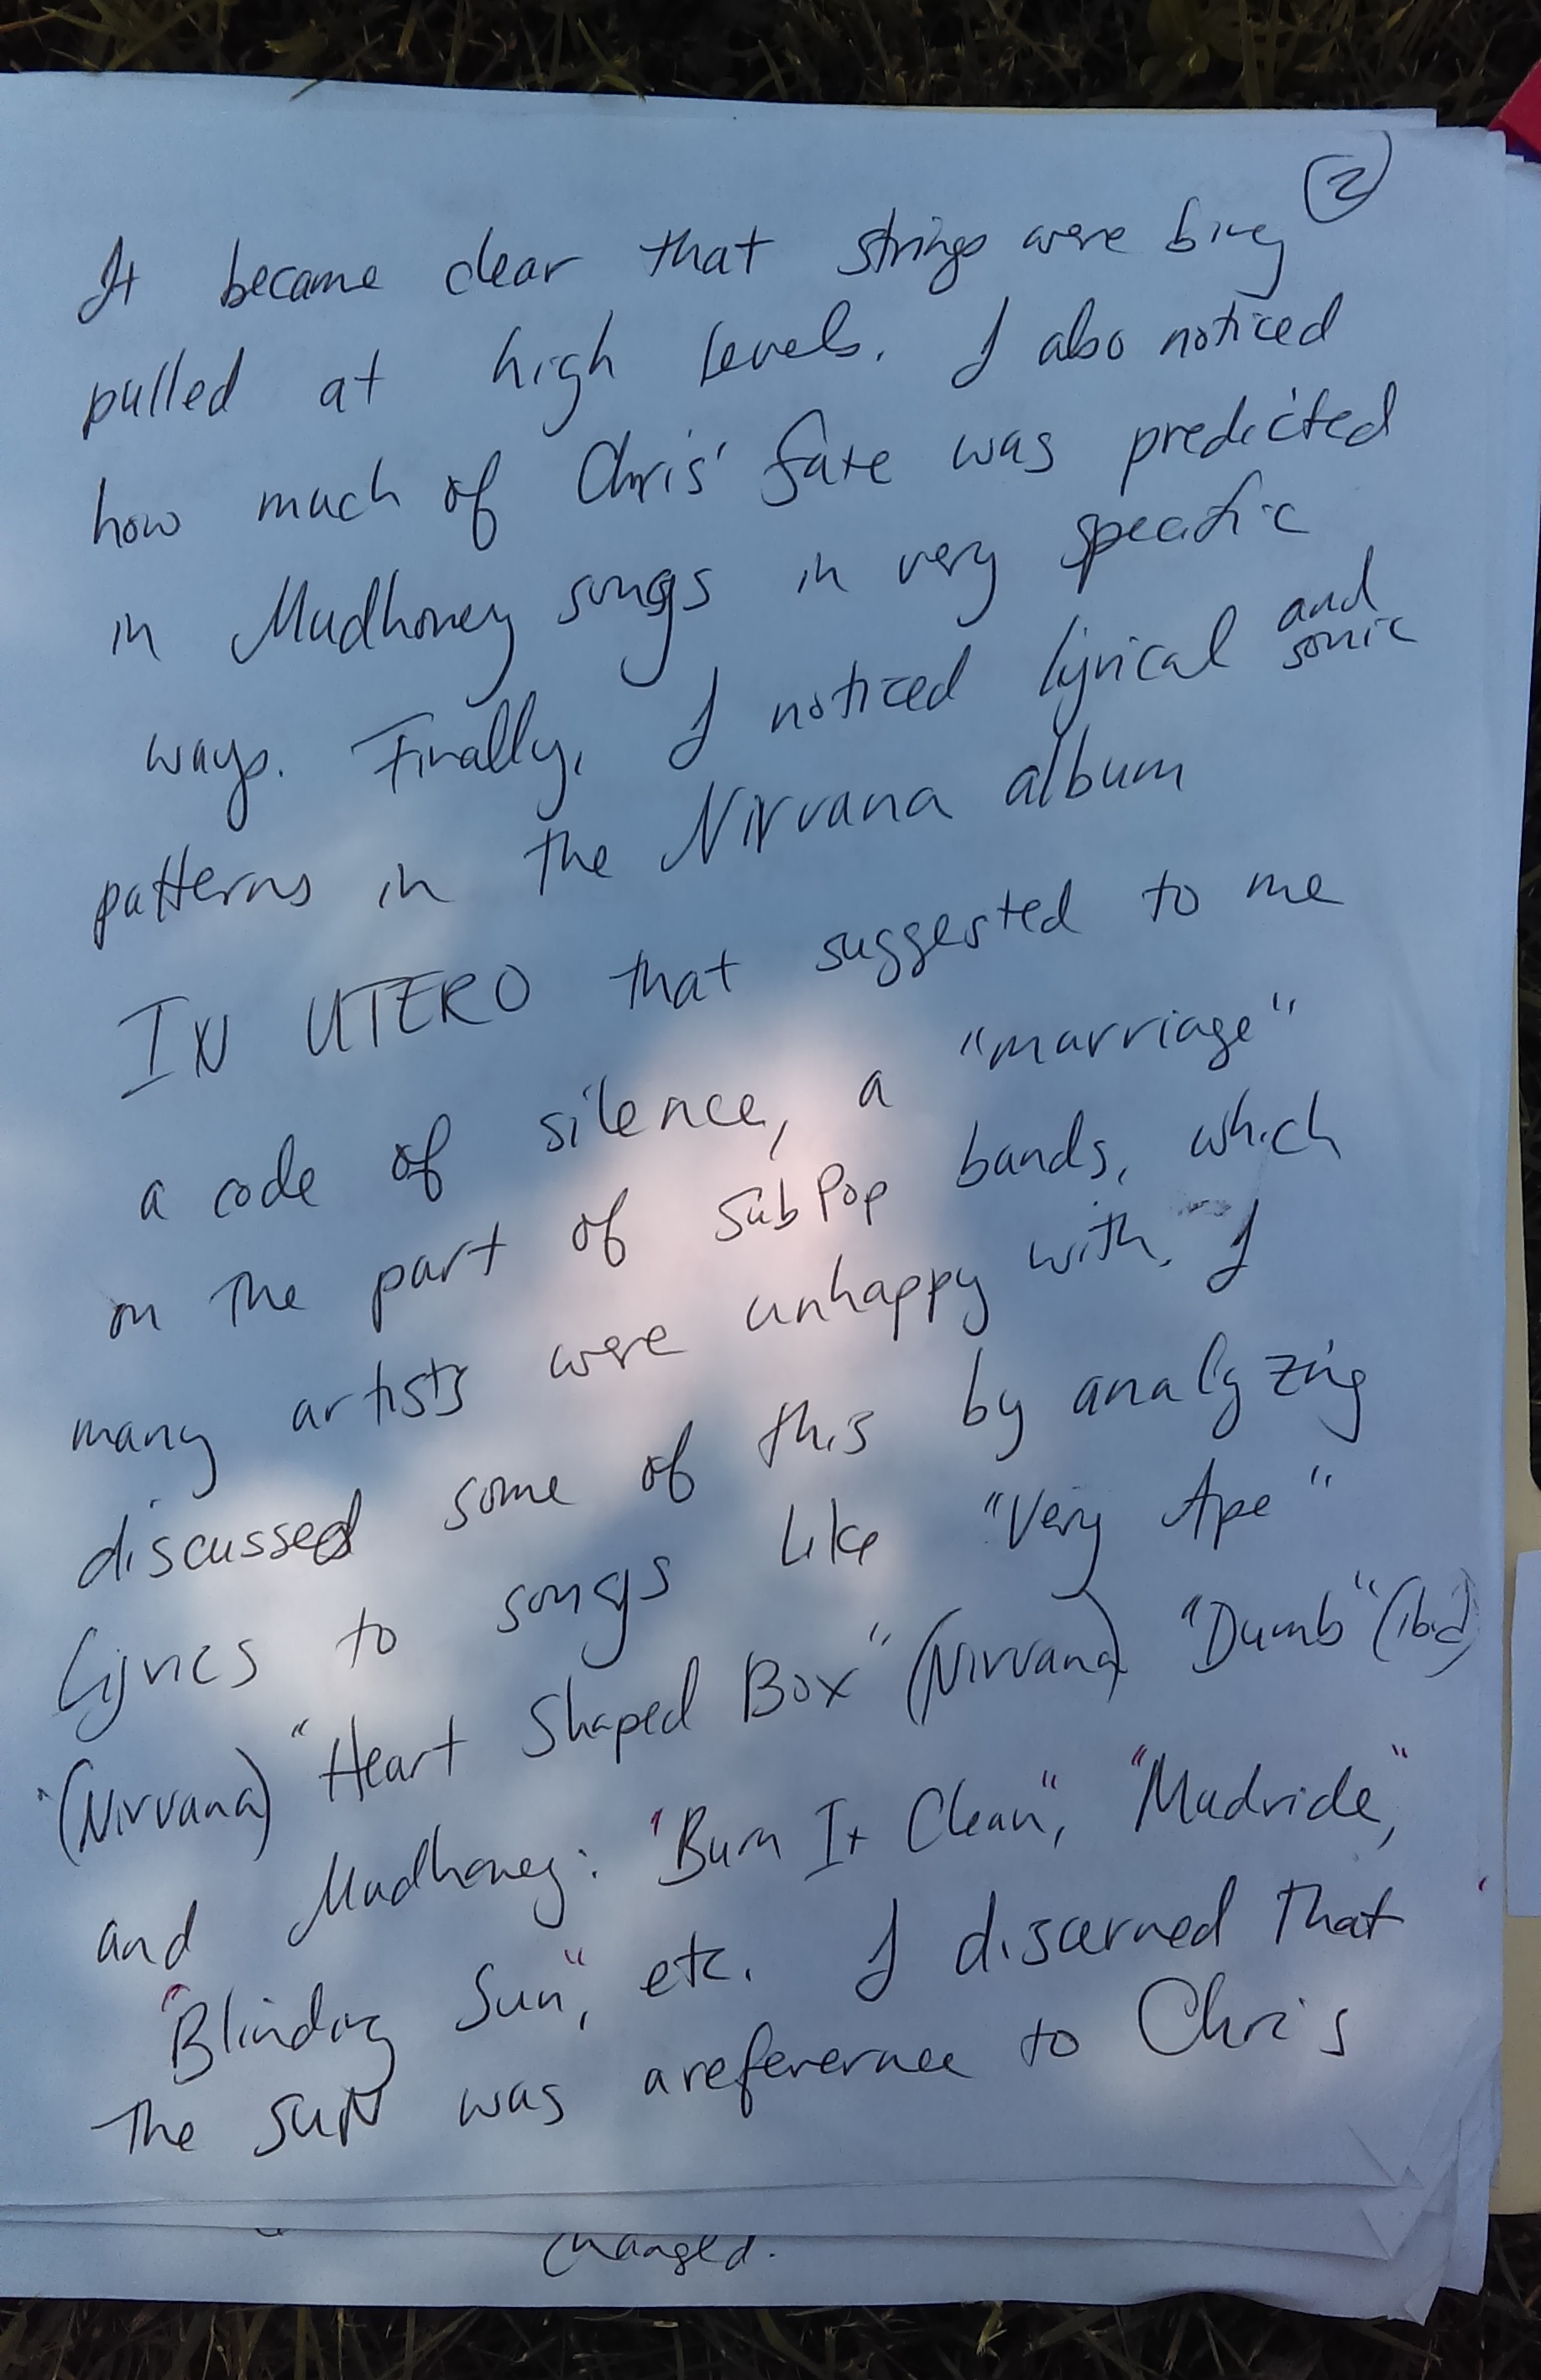 2
It became clear that strings were bing
pulled at high levels. I also noticed
how much of Chris' fate was predicted
in Mudhoney songs in very specific
ways. Finally, I noticed lyrical and sonic
patterns in the Nirvana album
IN UTERO that suggested to me
a code of silence, a "marriage"
on the part of SubPop bands, which
many artists were unhappy with. I
discussed some of this by analyzing
lyrics to songs like "Very Ape"
(Nirvana) "Heart Shaped Box" (Nirvana) "Dumb" (ibid)
and Mudhoney: "Burn It Clean", "Mudride,"
"Blinding Sun", etc. I discerned that
the SUN was a referernce to Chris
changed.